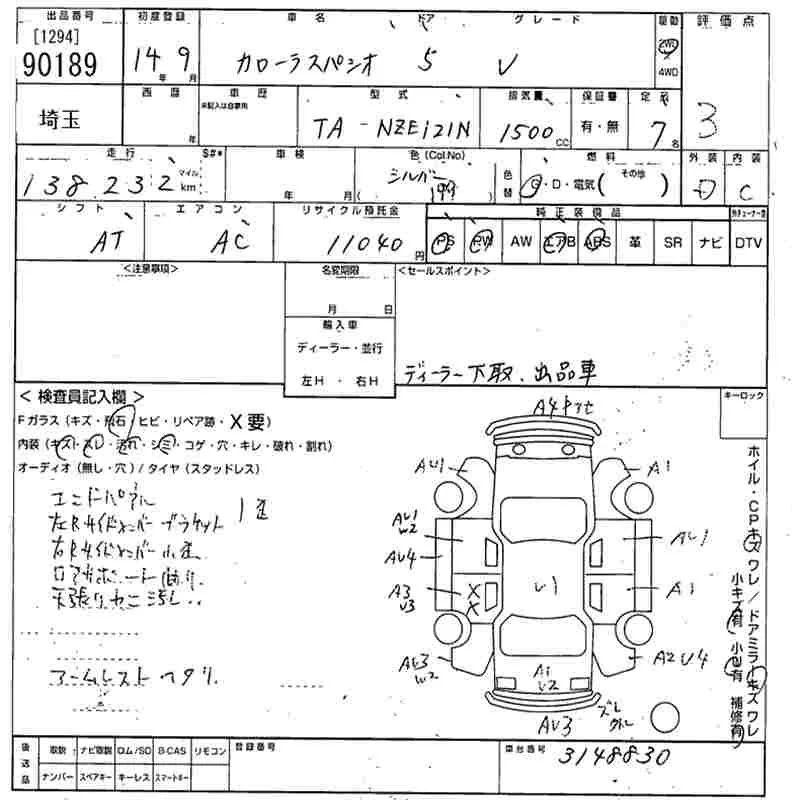 出品番号 初度登録 車名 ドア グレード 駆動 評価点
[1294]
90189 14年 9月 カローラスパシオ 5 V 2WD 4WD 3
埼玉 西暦 年 車歴 未記入は自家用 型式 排気量 保証書 定員
TA-NZE121N 1500cc 有・無 7名
走行 S#* 車検 色(Col.No) 燃料 外装 内装
138,232 マイル km 年 月 シルバー 色替 G・D・電気(その他) D C
シフト エアコン リサイクル預託金 純正装備品
AT AC 11040円 PS PW AW エアB ABS 革 SR ナビ DTV
<注意事項> 名変期限 <セールスポイント>
月 日
輸入車
ディーラー・並行
左H・右H
ディーラー下取、出品車
<検査員記入欄> キーロック
Fガラス(キズ・飛石・ヒビ・リペア跡・X要)
内装(キズ・スレ・汚れ・シミ・コゲ・穴・キレ・破れ・割れ)
オーディオ(無し・穴)/タイヤ(スタッドレス)
エンドパネル
左Rサイドメンバーブラケット
右Rサイドメンバー
ロアサポート曲り
天張りヤニ汚し
アームレスト ヘタリ
A4
AU1 A1
AU1 W2 AU1
AU4
A3 U3 XX U1 A1
AU3 W2 A2 U4
A1 U2
AU3 ズレ
ホイル・CPキズ ワレ/ドアミラーキズ ワレ
小キズ有 小凹有 補修有
後送品 取説 ナビ取説 ロム/SD B-CAS リモコン 登録番号 車台番号
ナンバー スペアキー キーレス スマートキー 3148830